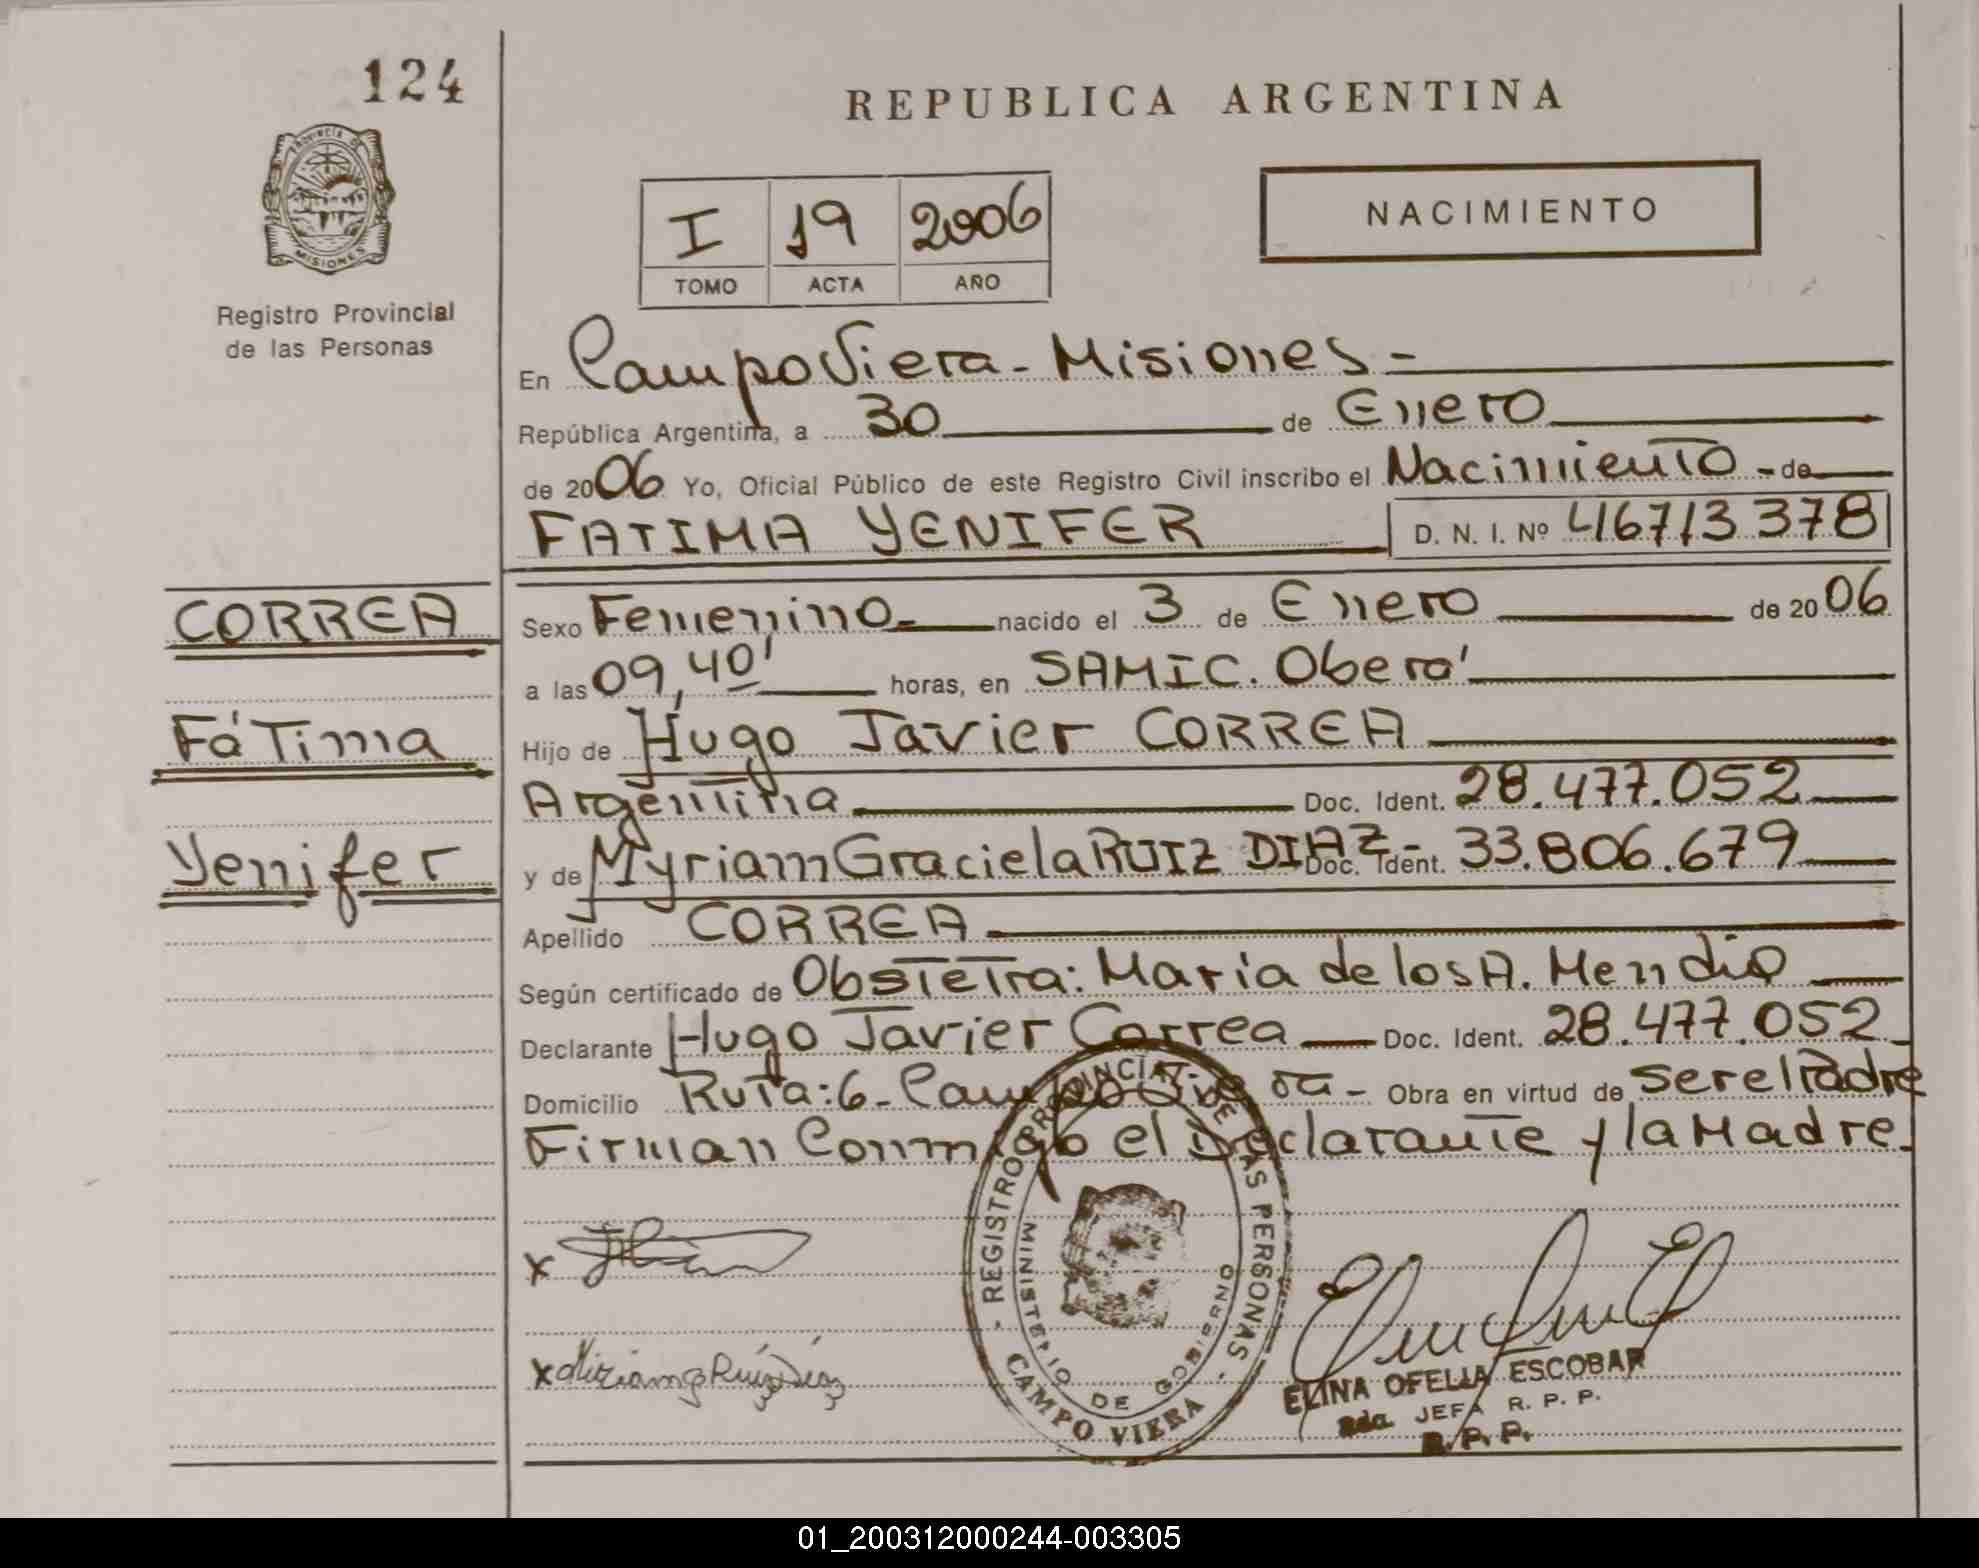 124
PROVINCIA DE
MISIONES
Registro Provincial
de las Personas
REPUBLICA ARGENTINA
I 19 2006
TOMO ACTA AÑO
NACIMIENTO
En Campo Viera - Misiones -
República Argentina, a 30 de Enero
de 2006 Yo, Oficial Público de este Registro Civil inscribo el Nacimiento - de
FATIMA YENIFER D. N. I. Nº 46713378
CORREA
Fátima
Yenifer
Sexo Femenino - nacido el 3 de Enero de 2006
a las 09,40' horas, en SAMIC. Oberá
Hijo de Hugo Javier CORREA
Argentina Doc. Ident. 28.477.052
y de Myriam Graciela RUIZ DIAZ - Doc. Ident. 33.806.679
Apellido CORREA
Según certificado de Obstetra: Maria de los A. Mendio
Declarante Hugo Javier Correa Doc. Ident. 28.477.052
Domicilio Ruta: 6 - Campo Viera - Obra en virtud de ser el Padre
Firman Conmigo el Declarante y la Madre.
x
x Miriam g Ruíz Díaz
REGISTRO PROVINCIAL DE LAS PERSONAS
MINISTERIO DE GOBIERNO
CAMPO VIERA
ELINA OFELIA ESCOBAR
2da. JEFA R. P. P.
R. P. P.
01_200312000244-003305